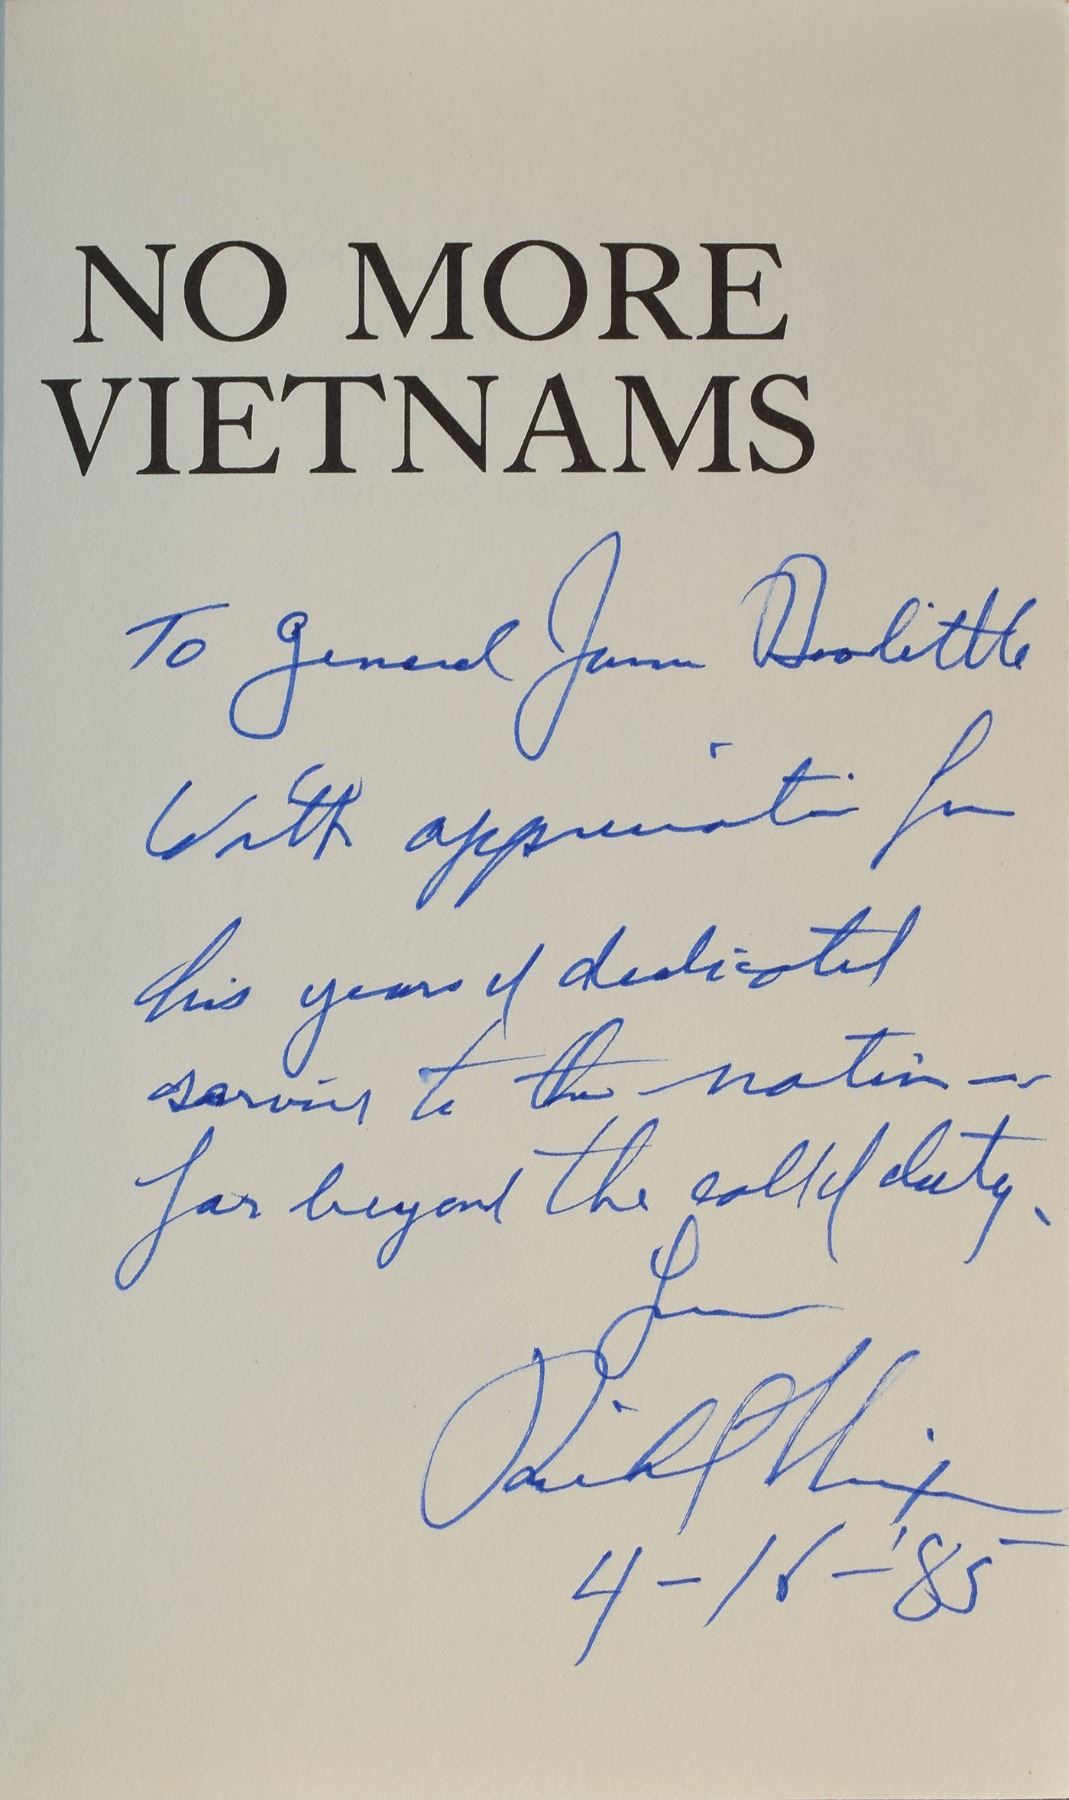 NO MORE
VIETNAMS
To General James Doolittle
With appreciation for
his years of dedicated
service to the nation -
far beyond the call of duty.
from
Richard Nixon
4-16-'85